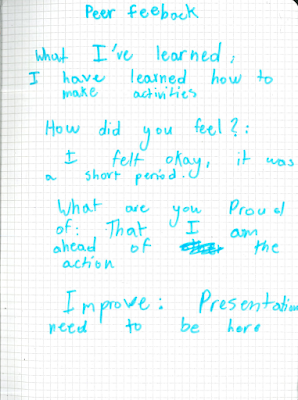 Peer feeback
What I've learned;
I have learned how to
make activities
How did you feel?:
I felt okay, it was
a short period.
What are you Proud
of: That I am
ahead of the
action
Improve: Presentation
need to be here